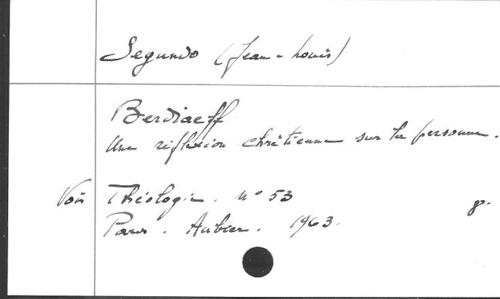 Segundo (Jean-Louis)
Berdiaeff
Une réflexion chrétienne sur la personne.
Voir Théologie. n° 53
Paris. Aubier. 1963. 8°